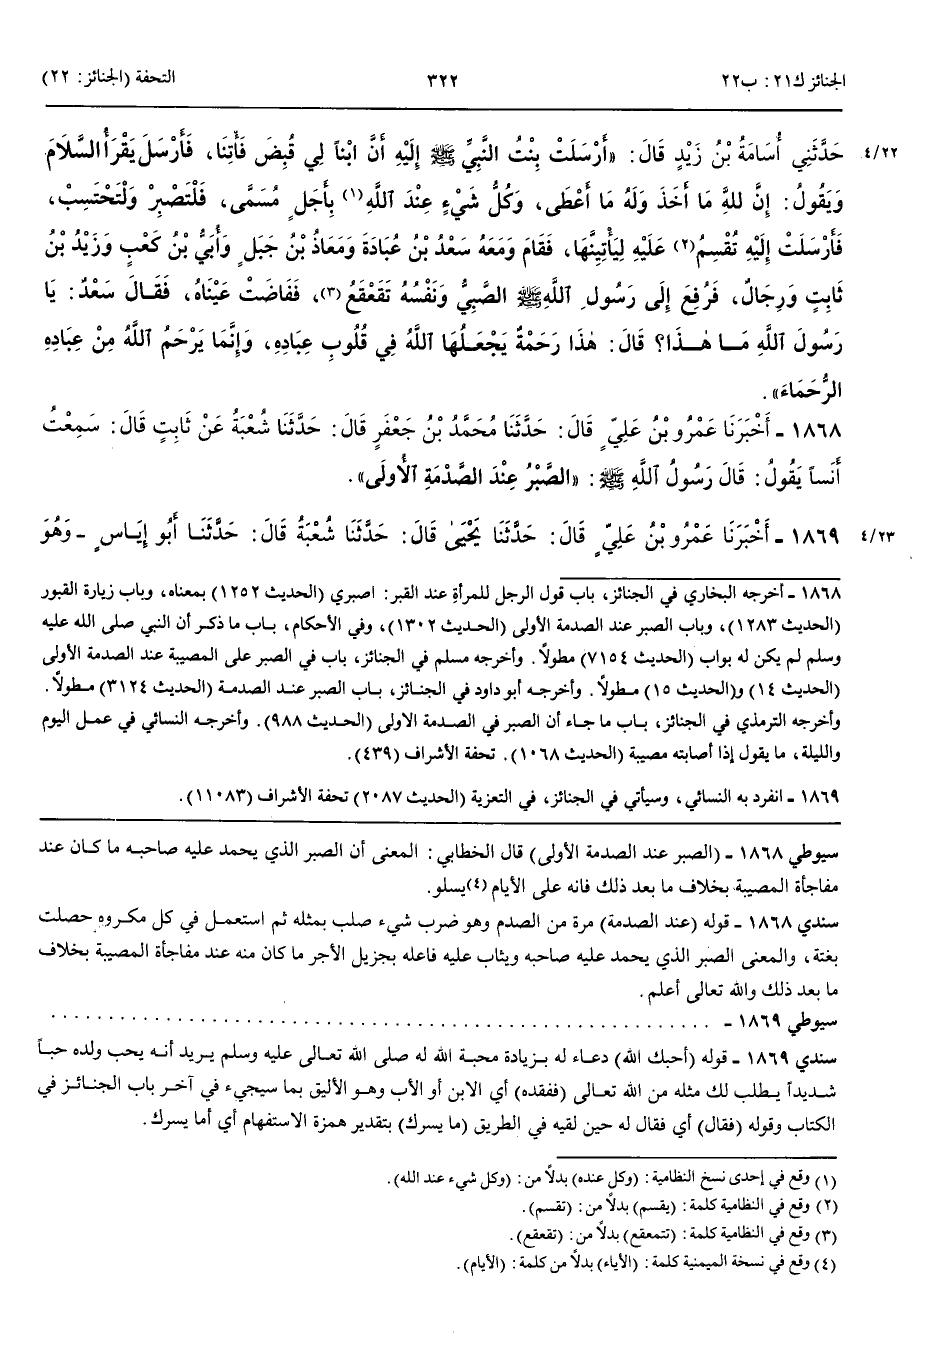 الجنائز ك٢١: ب٢٢ ٣٢٢ التحفة (الجنائز: ٢٢)
٤/٢٢ حَدَّثَنِي أُسَامَةُ بْنُ زَيْدٍ قَالَ: «أَرْسَلَتْ بِنْتُ النَّبِيِّ ﷺ إِلَيْهِ أَنَّ ابْناً لِي قُبِضَ فَأْتِنَا، فَأَرْسَلَ يَقْرَأُ السَّلَامَ
وَيَقُولُ: إِنَّ للهِ مَا أَخَذَ وَلَهُ مَا أَعْطَى، وَكُلُّ شَيْءٍ عِنْدَ اللَّهِ(١) بِأَجَلٍ مُسَمًّى، فَلْتَصْبِرْ وَلْتَحْتَسِبْ،
فَأَرْسَلَتْ إِلَيْهِ تُقْسِمُ(٢) عَلَيْهِ لِيَأْتِيَنَّهَا، فَقَامَ وَمَعَهُ سَعْدُ بْنُ عُبَادَةَ وَمَعَاذُ بْنُ جَبَلٍ وَأُبَيُّ بْنُ كَعْبٍ وَزَيْدُ بْنُ
ثَابِتٍ وَرِجَالٌ، فَرُفِعَ إِلَى رَسُولِ اللَّهِ ﷺ الصَّبِيُّ وَنَفْسُهُ تَقَعْقَعُ(٣)، فَفَاضَتْ عَيْنَاهُ، فَقَالَ سَعْدٌ: يَا
رَسُولَ اللَّهِ مَا هٰذَا؟ قَالَ: هٰذَا رَحْمَةٌ يَجْعَلُهَا اللَّهُ فِي قُلُوبِ عِبَادِهِ، وَإِنَّمَا يَرْحَمُ اللَّهُ مِنْ عِبَادِهِ
الرُّحَمَاءَ».
١٨٦٨ ـ أَخْبَرَنَا عَمْرُو بْنُ عَلِيٍّ قَالَ: حَدَّثَنَا مُحَمَّدُ بْنُ جَعْفَرٍ قَالَ: حَدَّثَنَا شُعْبَةُ عَنْ ثَابِتٍ قَالَ: سَمِعْتُ
أَنَساً يَقُولُ: قَالَ رَسُولُ اللَّهِ ﷺ: «الصَّبْرُ عِنْدَ الصَّدْمَةِ الْأُولَى».
٤/٢٣ ١٨٦٩ ـ أَخْبَرَنَا عَمْرُو بْنُ عَلِيٍّ قَالَ: حَدَّثَنَا يَحْيَىٰ قَالَ: حَدَّثَنَا شُعْبَةُ قَالَ: حَدَّثَنَا أَبُو إِيَاسٍ ـ وَهُوَ
١٨٦٨ ـ أخرجه البخاري في الجنائز، باب قول الرجل للمرأة عند القبر: اصبري (الحديث ١٢٥٢) بمعناه، وباب زيارة القبور
(الحديث ١٢٨٣)، وباب الصبر عند الصدمة الأولى (الحديث ١٣٠٢)، وفي الأحكام، باب ما ذكر أن النبي صلى الله عليه
وسلم لم يكن له بواب (الحديث ٧١٥٤) مطولاً. وأخرجه مسلم في الجنائز، باب في الصبر على المصيبة عند الصدمة الأولى
(الحديث ١٤) و(الحديث ١٥) مطولاً. وأخرجه أبو داود في الجنائز، باب الصبر عند الصدمة (الحديث ٣١٢٤) مطولاً.
وأخرجه الترمذي في الجنائز، باب ما جاء أن الصبر في الصدمة الاولى (الحديث ٩٨٨). وأخرجه النسائي في عمل اليوم
والليلة، ما يقول إذا أصابته مصيبة (الحديث ١٠٦٨). تحفة الأشراف (٤٣٩).
١٨٦٩ ـ انفرد به النسائي، وسيأتي في الجنائز، في التعزية (الحديث ٢٠٨٧) تحفة الأشراف (١١٠٨٣).
سيوطي ١٨٦٨ ـ (الصبر عند الصدمة الأولى) قال الخطابي: المعنى أن الصبر الذي يحمد عليه صاحبه ما كان عند
مفاجأة المصيبة بخلاف ما بعد ذلك فانه على الأيام (٤)يسلو.
سندي ١٨٦٨ ـ قوله (عند الصدمة) مرة من الصدم وهو ضرب شيء صلب بمثله ثم استعمل في كل مكروه حصلت
بغتة، والمعنى الصبر الذي يحمد عليه صاحبه ويثاب عليه فاعله بجزيل الأجر ما كان منه عند مفاجأة المصيبة بخلاف
ما بعد ذلك والله تعالى أعلم.
سيوطي ١٨٦٩ ـ . . . . . . . . . . . . . . . . . . . . . . . . . . . . . . . . . . . . . . . .
سندي ١٨٦٩ ـ قوله (أحبك الله) دعاء له بزيادة محبة الله له صلى الله تعالى عليه وسلم يريد أنه يحب ولده حباً
شديداً يطلب لك مثله من الله تعالى (ففقده) أي الابن أو الأب وهو الأليق بما سيجيء في آخر باب الجنائز في
الكتاب وقوله (فقال) أي فقال له حين لقيه في الطريق (ما يسرك) بتقدير همزة الاستفهام أي أما يسرك.
(١) وقع في إحدى نسخ النظامية: (وكل عنده) بدلاً من: (وكل شيء عند الله).
(٢) وقع في النظامية كلمة: (يقسم) بدلاً من: (تقسم).
(٣) وقع في النظامية كلمة: (تتمعقع) بدلاً من: (تقعقع).
(٤) وقع في نسخة الميمنية كلمة: (الأياء) بدلاً من كلمة: (الأيام).